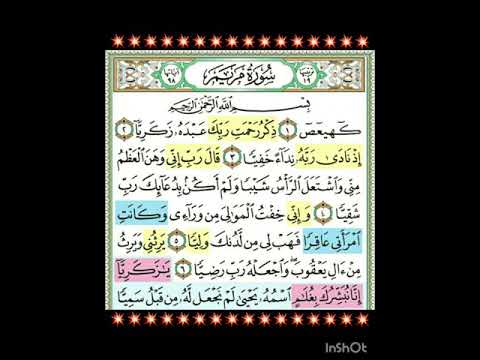 ترتيبها ١٩ سُورَةُ مَرْيَمَ آياتها ٩٨
بِسْمِ اللَّهِ الرَّحْمَٰنِ الرَّحِيمِ
كٓهيعٓصٓ ١ ذِكْرُ رَحْمَتِ رَبِّكَ عَبْدَهُۥ زَكَرِيَّآ ٢
إِذْ نَادَىٰ رَبَّهُۥ نِدَآءً خَفِيًّا ٣ قَالَ رَبِّ إِنِّى وَهَنَ ٱلْعَظْمُ
مِنِّى وَٱشْتَعَلَ ٱلرَّأْسُ شَيْبًا وَلَمْ أَكُنۢ بِدُعَآئِكَ رَبِّ
شَقِيًّا ٤ وَإِنِّى خِفْتُ ٱلْمَوَٰلِىَ مِن وَرَآءِى وَكَانَتِ
ٱمْرَأَتِى عَاقِرًا فَهَبْ لِى مِن لَّدُنكَ وَلِيًّا ٥ يَرِثُنِى وَيَرِثُ
مِنْ ءَالِ يَعْقُوبَ ۖ وَٱجْعَلْهُ رَبِّ رَضِيًّا ٦ يَٰزَكَرِيَّآ
إِنَّا نُبَشِّرُكَ بِغُلَٰمٍ ٱسْمُهُۥ يَحْيَىٰ لَمْ نَجْعَل لَّهُۥ مِن قَبْلُ سَمِيًّا
InShOt